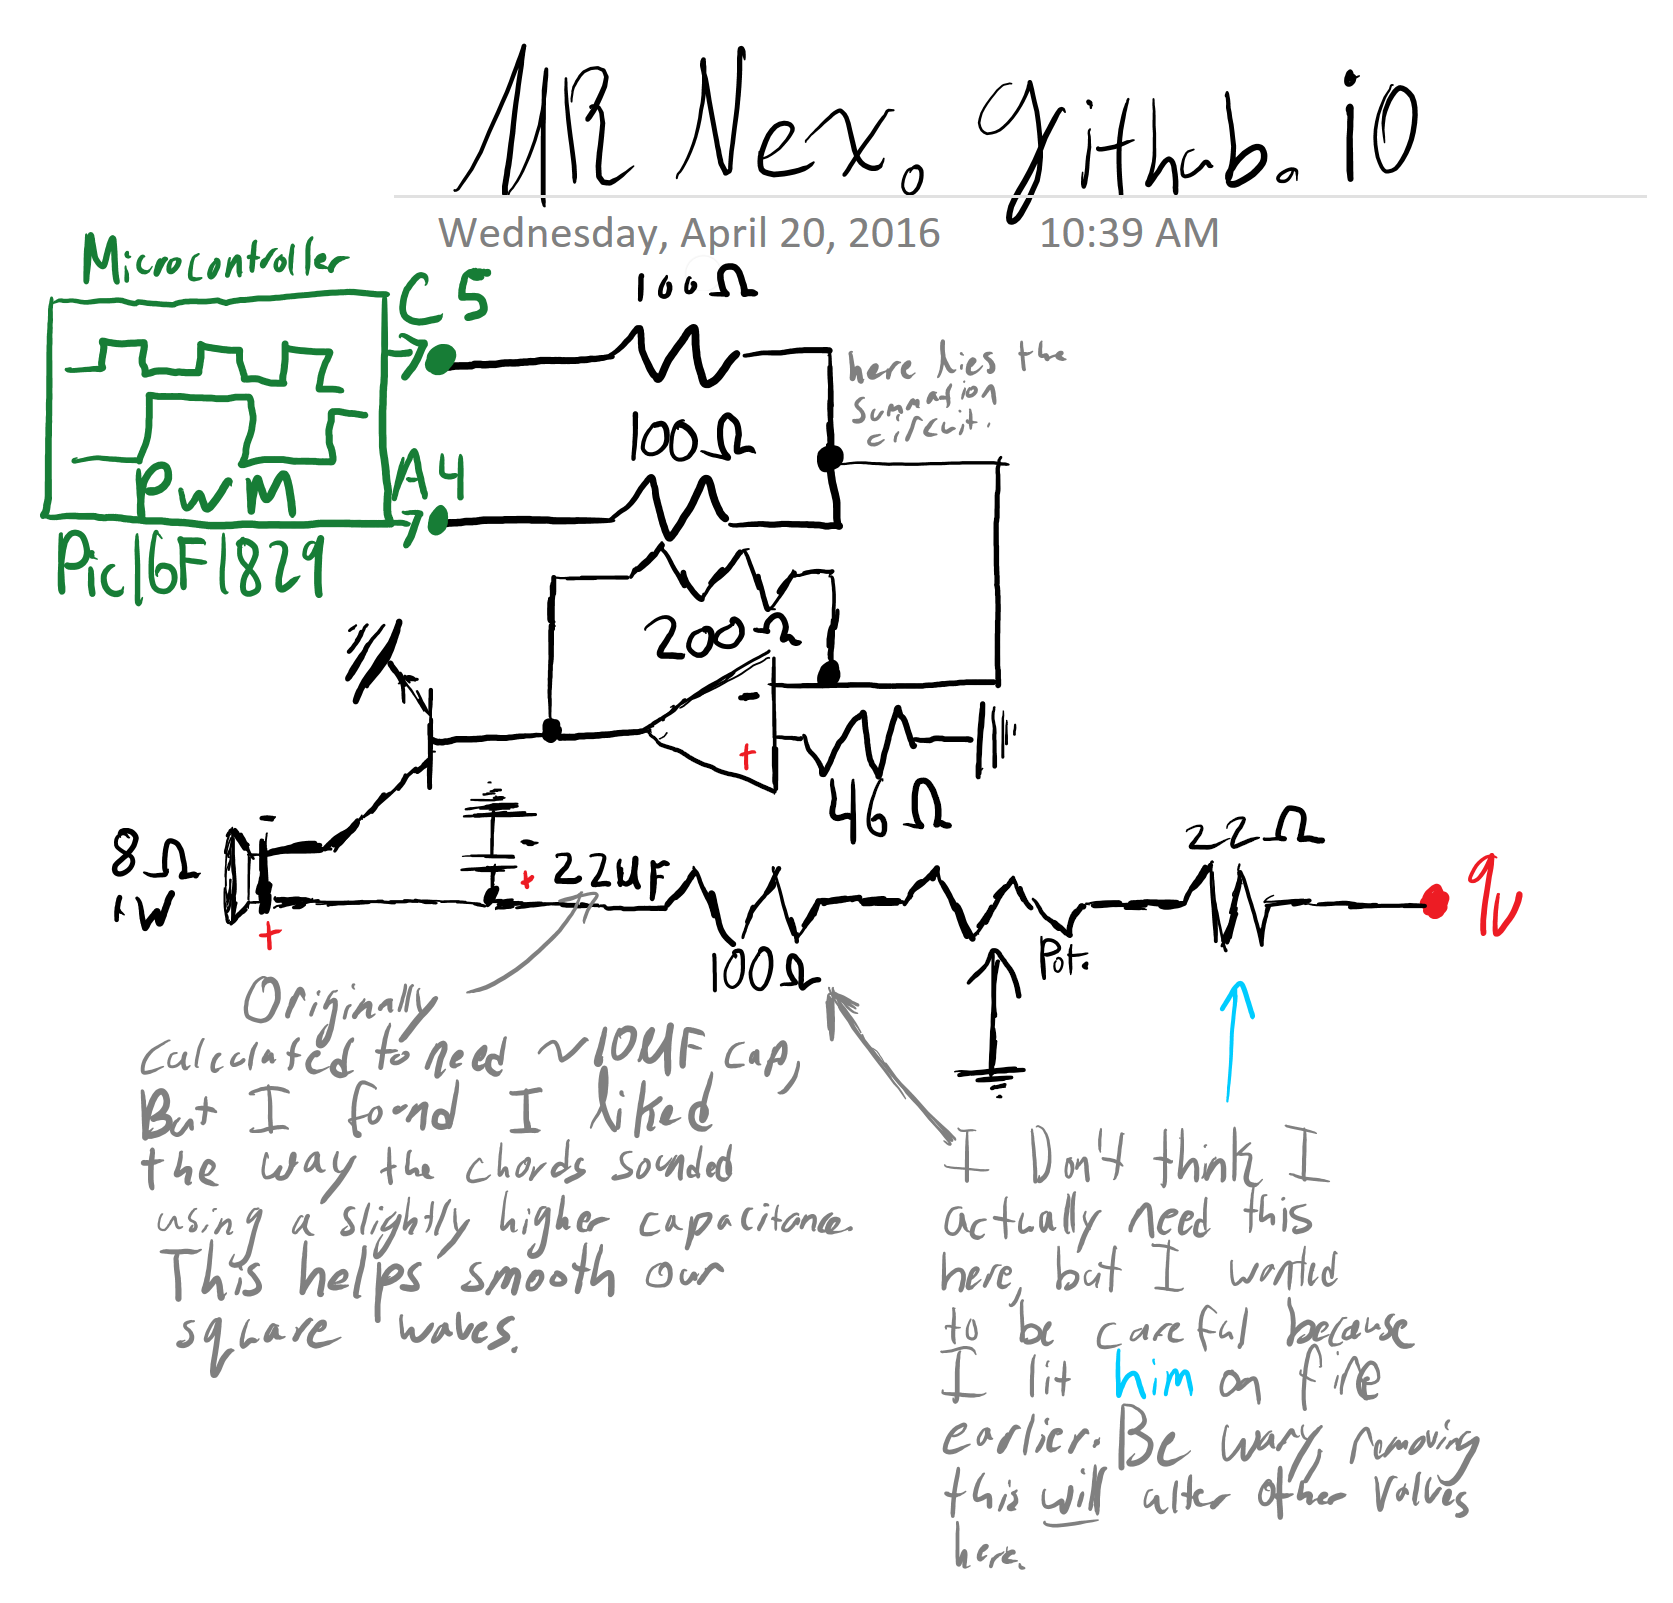 MR Nex. githab. io
Wednesday, April 20, 2016 10:39 AM
Microcontroller
C5
100Ω
here lies the
summation
circuit.
100Ω
A4
PWM
Pic16F1829
200Ω
-
+
46Ω
8Ω
1W
-
+
-
+
22µF
100Ω
Pot.
22Ω
9v
Originally
calculated to need ~10µF cap,
But I found I liked
the way the chords sounded
using a slightly higher capacitance.
This helps smooth our
square waves.
I Don't think I
actually need this
here, but I wanted
to be careful because
I lit him on fire
earlier. Be wary, removing
this will alter other values
here.